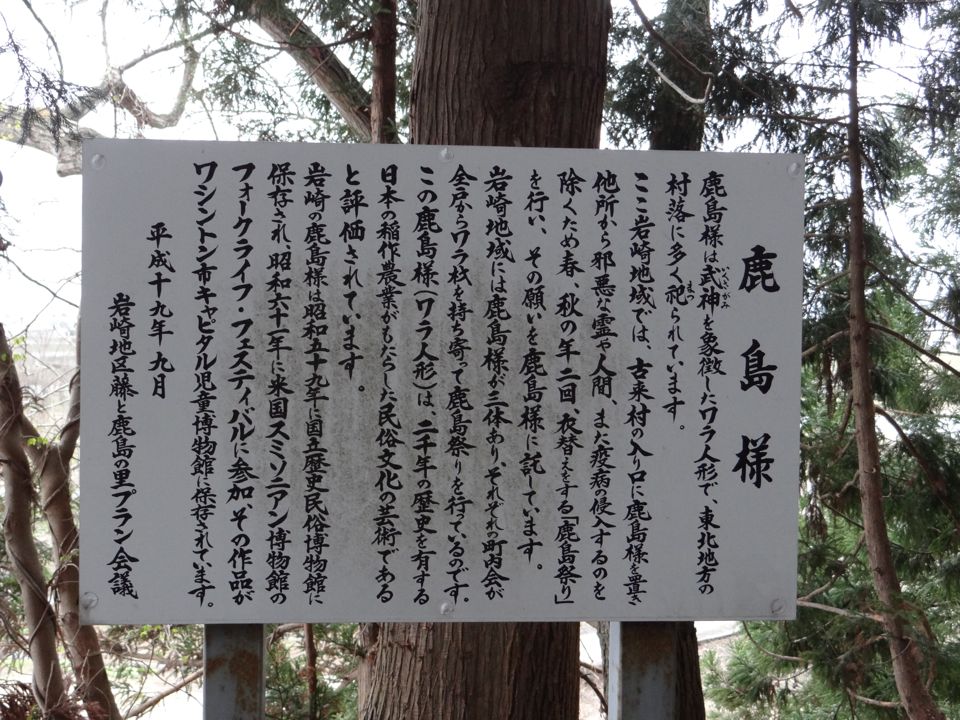 鹿島様
鹿島様は武神を象徴したワラ人形で、東北地方の
村落に多く祀られています。
ここ岩崎地域では、古来村の入り口に鹿島様を置き
他所から邪悪な霊や人間、また疫病の侵入するのを
除くため春、秋の年二回、衣替えをする「鹿島祭り」
を行い、その願いを鹿島様に託しています。
岩崎地域には鹿島様が三体あり、それぞれの町内会が
全戸からワラ杖を持ち寄って鹿島祭りを行っているのです。
この鹿島様（ワラ人形）は、二千年の歴史を有する
日本の稲作農業がもたらした民俗文化の芸術である
と評価されています。
岩崎の鹿島様は昭和五十九年に国立歴史民俗博物館に
保存され、昭和六十一年に米国スミソニアン博物館の
フォークライフ・フェスティバルに参加、その作品が
ワシントン市キャピタル児童博物館に保存されています。
平成十九年九月
岩崎地区藤と鹿島の里プラン会議